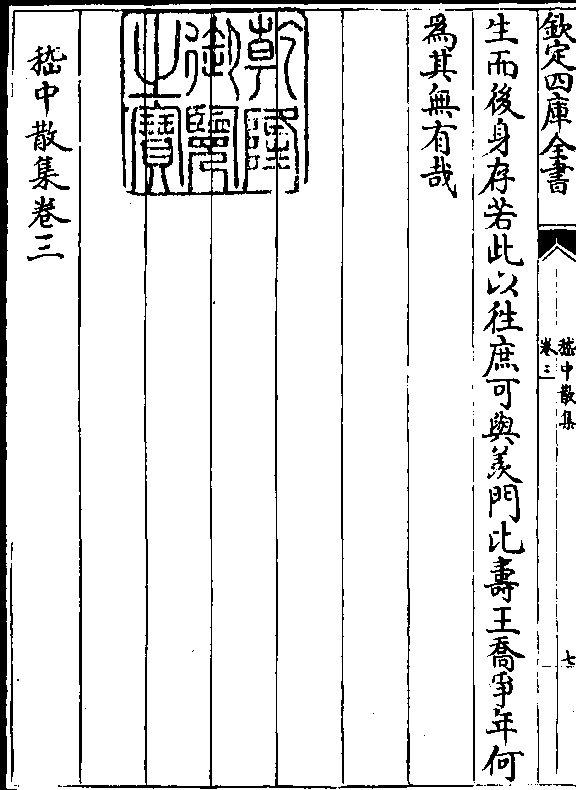 欽定四庫全書
嵇中散集
卷三
七
生而後身存若此以往庶可與羨門比壽王喬爭年何
為其無有哉
乾隆
御覽
之寶
嵇中散集卷三